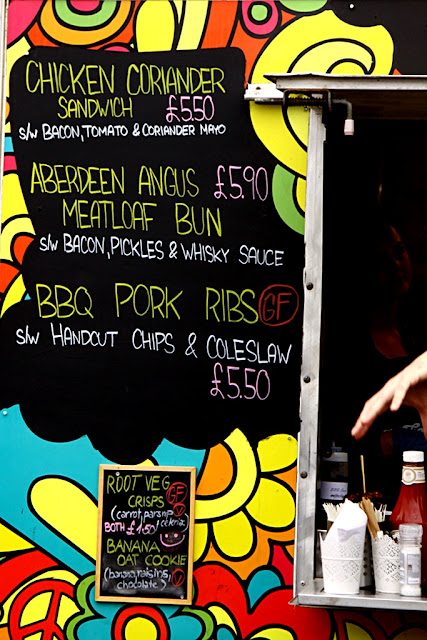 CHICKEN CORIANDER
SANDWICH £5.50
s/w BACON, TOMATO & CORIANDER MAYO
ABERDEEN ANGUS £5.90
MEATLOAF BUN
s/w BACON, PICKLES & WHISKY SAUCE
BBQ PORK RIBS GF
s/w HANDCUT CHIPS & COLESLAW
£5.50
ROOT VEG
CRISPS GF
(carrot, parsnip, V
BOTH £1.50 celeriac)
BANANA
OAT COOKIE
(banana, raisins,
chocolate) V